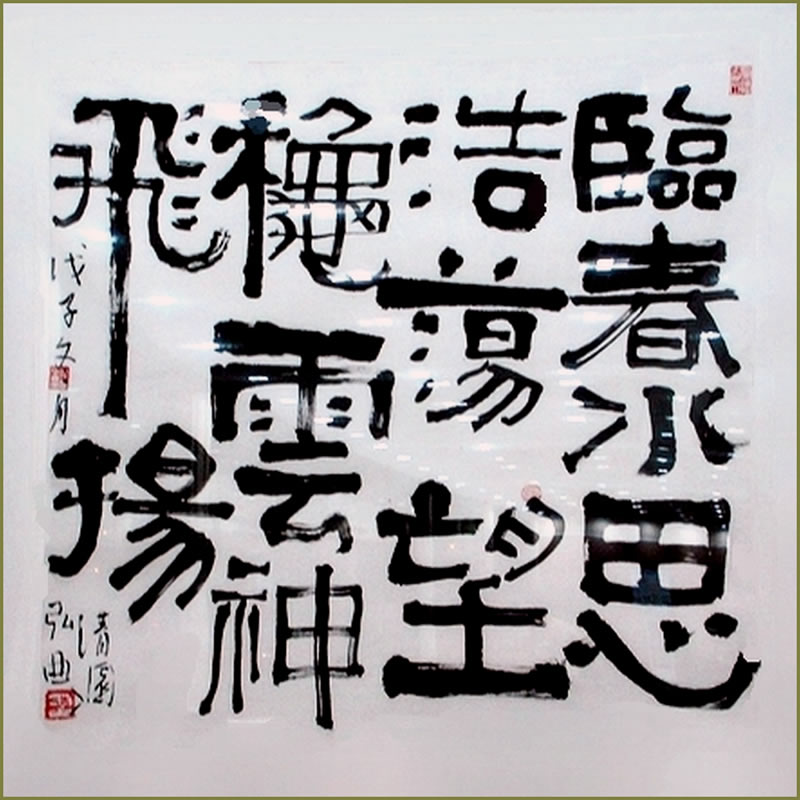 臨春水思
浩蕩望
龝雲神
飛揚
戊子 月
清園
弘曲